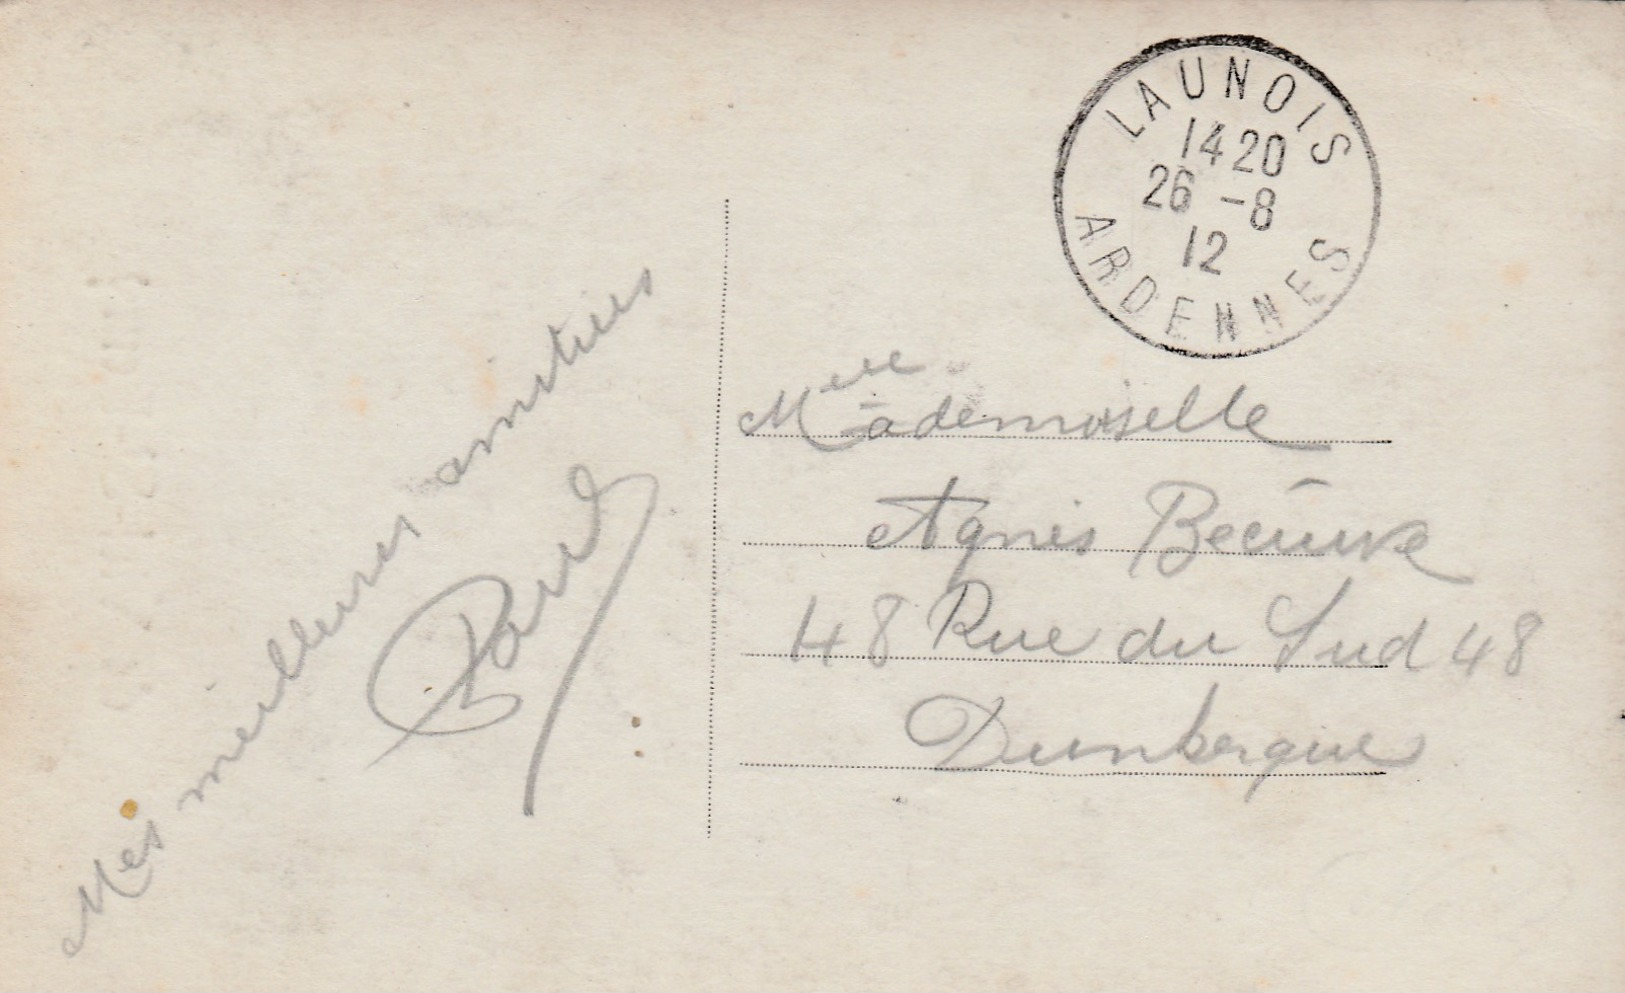 Mes meilleures amitiés
Paul
LAUNOIS
14 20
26 -8
12
ARDENNES
Mademoiselle
Agnès
48 Rue du Sud 48
Dunkerque